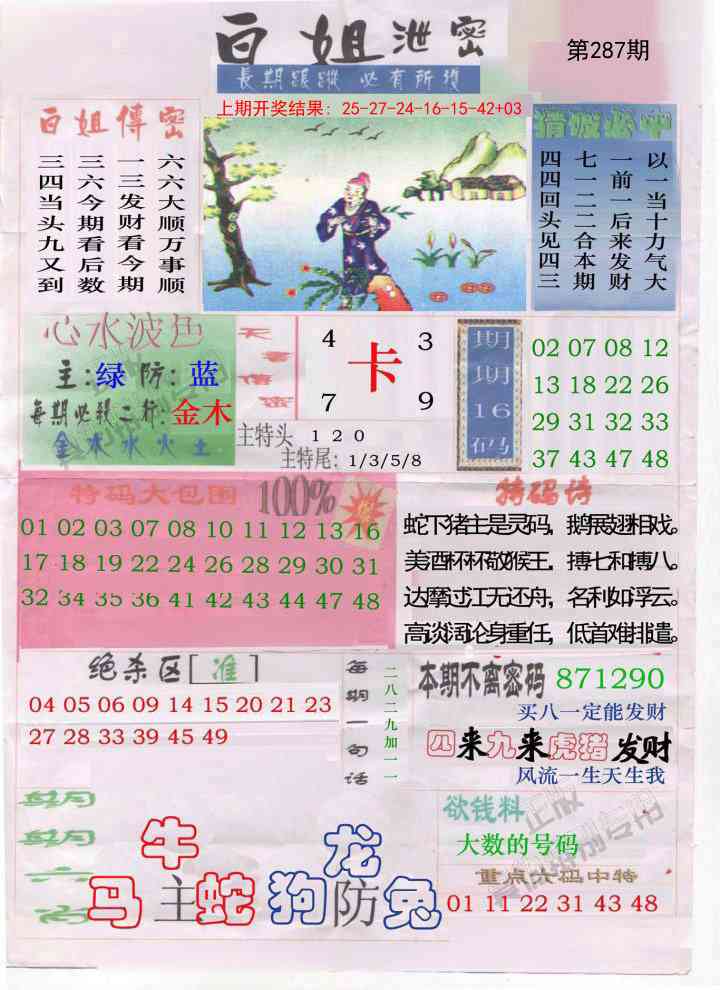 白姐泄密
第287期
長期跟蹤 必有所獲
上期开奖结果: 25-27-24-16-15-42+03
白姐傳密
六六大顺万事顺
一三发财看今期
三六今期看后数
三四当头九又到
以一当十力气大
一前一后来发财
七一二二合本期
四四回头见四三
心水波色
主:绿 防:蓝
每期必转二行:金木
金木水火土
4 3
卡
7 9
主特头 1 2 0
主特尾: 1/3/5/8
期期16码
02 07 08 12
13 18 22 26
29 31 32 33
37 43 47 48
特码大包围 100%
01 02 03 07 08 10 11 12 13 16
17 18 19 22 24 26 28 29 30 31
32 34 35 36 41 42 43 44 47 48
特码诗
蛇下猪主是灵码，鹅展翅相戏。
美酒杯杯敬猴王，搏七和搏八。
达摩过江无还舟，名利如浮云。
高谈阔论身重任，低首难排遣。
绝杀区[准]
04 05 06 09 14 15 20 21 23
27 28 33 39 45 49
每期一句话
二八二九加一一
本期不离密码 871290
买八一定能发财
四来九来虎猪发财
风流一生天生我
欲钱料
大数的号码
重点六码中特
01 11 22 31 43 48
每期
每期
六
肖
牛 龙
马主蛇 狗防兔